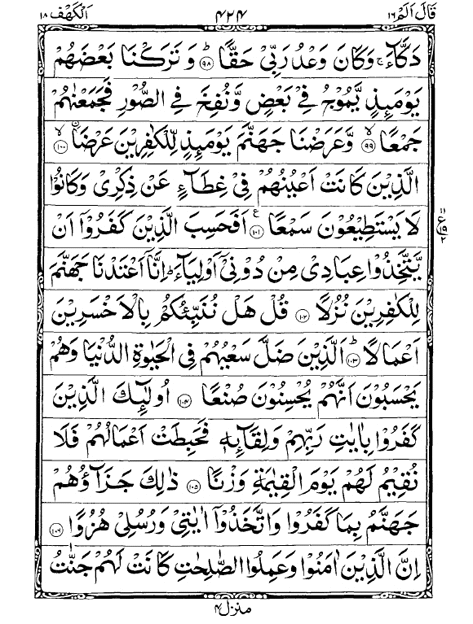 قَالَ اَلَمْ ١٦ ٤٢٤ اَلْكَهْف ١٨
دَكَّآءَ ۚ وَكَانَ وَعْدُ رَبِّیْ حَقًّا ؕ ﴿٩٨﴾ وَ تَرَكْنَا بَعْضَهُمْ
يَوْمَئِذٍ يَّمُوْجُ فِیْ بَعْضٍ وَّنُفِخَ فِی الصُّوْرِ فَجَمَعْنٰهُمْ
جَمْعًا ۙ ﴿٩٩﴾ وَّعَرَضْنَا جَهَنَّمَ يَوْمَئِذٍ لِّلْكٰفِرِيْنَ عَرْضَا ۙ ﴿١٠٠﴾
الَّذِيْنَ كَانَتْ اَعْيُنُهُمْ فِیْ غِطَآءٍ عَنْ ذِكْرِیْ وَكَانُوْا
لَا يَسْتَطِيْعُوْنَ سَمْعًا ﴿١٠١﴾ ع اَفَحَسِبَ الَّذِيْنَ كَفَرُوْۤا اَنْ
يَّتَّخِذُوْا عِبَادِیْ مِنْ دُوْنِیْۤ اَوْلِيَآءَ ؕ اِنَّاۤ اَعْتَدْنَا جَهَنَّمَ
لِلْكٰفِرِيْنَ نُزُلًا ﴿١٠٢﴾ قُلْ هَلْ نُنَبِّئُكُمْ بِالْاَخْسَرِيْنَ
اَعْمَالًا ؕ ﴿١٠٣﴾ اَلَّذِيْنَ ضَلَّ سَعْيُهُمْ فِی الْحَيٰوةِ الدُّنْيَا وَهُمْ
يَحْسَبُوْنَ اَنَّهُمْ يُحْسِنُوْنَ صُنْعًا ﴿١٠٤﴾ اُولٰٓئِكَ الَّذِيْنَ
كَفَرُوْا بِاٰيٰتِ رَبِّهِمْ وَلِقَآئِهٖ فَحَبِطَتْ اَعْمَالُهُمْ فَلَا
نُقِيْمُ لَهُمْ يَوْمَ الْقِيٰمَةِ وَزْنًا ﴿١٠٥﴾ ذٰلِكَ جَزَآؤُهُمْ
جَهَنَّمُ بِمَا كَفَرُوْا وَاتَّخَذُوْۤا اٰيٰتِیْ وَرُسُلِیْ هُزُوًا ﴿١٠٦﴾
اِنَّ الَّذِيْنَ اٰمَنُوْا وَعَمِلُوا الصّٰلِحٰتِ كَانَتْ لَهُمْ جَنّٰتُ
منزل ٤